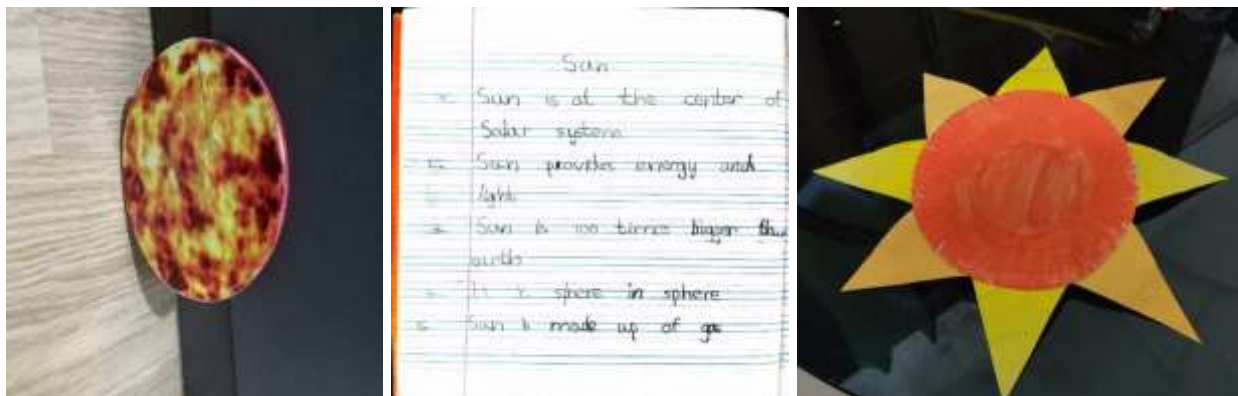 Sun
Sun is at the center of
Solar system
Sun provides energy and
light
Sun is 100 times bigger than
earth
It is sphere in sphere
5. Sun is made up of gas